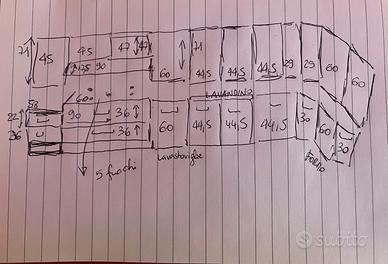 71 45 45 47 47 71
90 60 44,5 44,5 44,5 29 29 60 60
600 LAVANDINO
58
22 90 36 60 44,5 44,5 44,5 30 60 30
36 36
Lavastoviglie FORNO
5 fuochi
subito